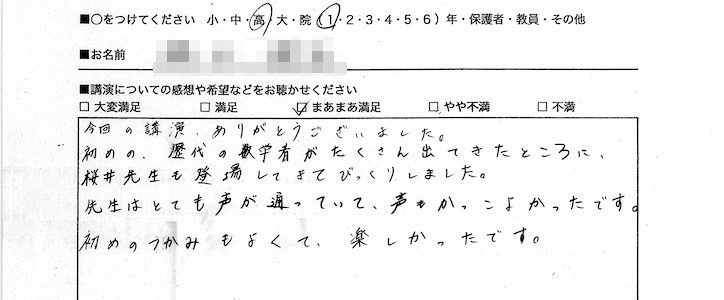 ■○をつけてください 小・中・高・大・院（1・2・3・4・5・6）年・保護者・教員・その他
■お名前
■講演についての感想や希望などをお聴かせください
□ 大変満足 □ 満足 □ まあまあ満足 □ やや不満 □ 不満
今回の講演、ありがとうございました。
初めの、歴代の数学者がたくさん出てきたところに、
桜井先生も登場してきてびっくりしました。
先生はとても声が通っていて、声もかっこよかったです。
初めのつかみもよくて、楽しかったです。